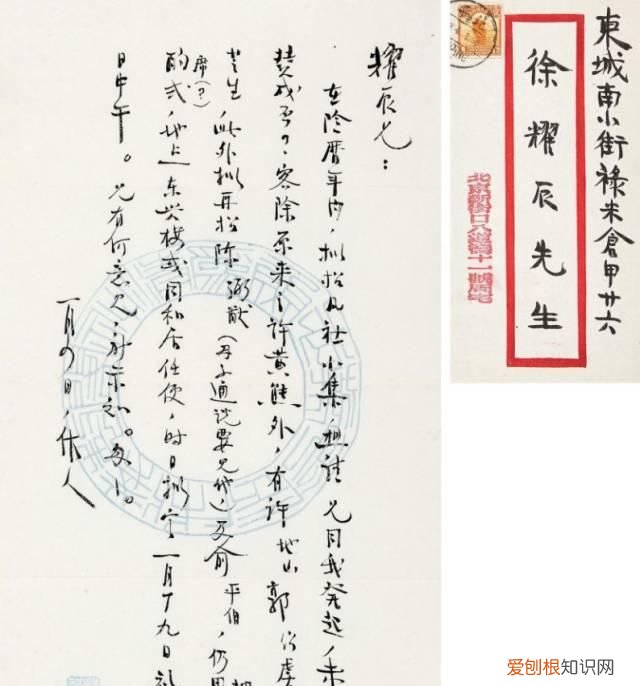 耀辰兄：
在陰暦年内，拟招凡社小集，想請 兄同我発起，未
賛成否？客除原来之許黄熊外，有許地山 郭
芝生，此外拟再招陈 （ 通说要兄代）及俞平伯，仍用
席（？）
的式，地点东兴楼或同和居任便，时日拟定一月十九日礼
日中午。兄有何意见，祈示知。匆匆。
一月四日，作人
東城南小街禄米倉甲廿六
徐耀辰先生
北京新街口八道灣十一號周宅
爱刨根知识网